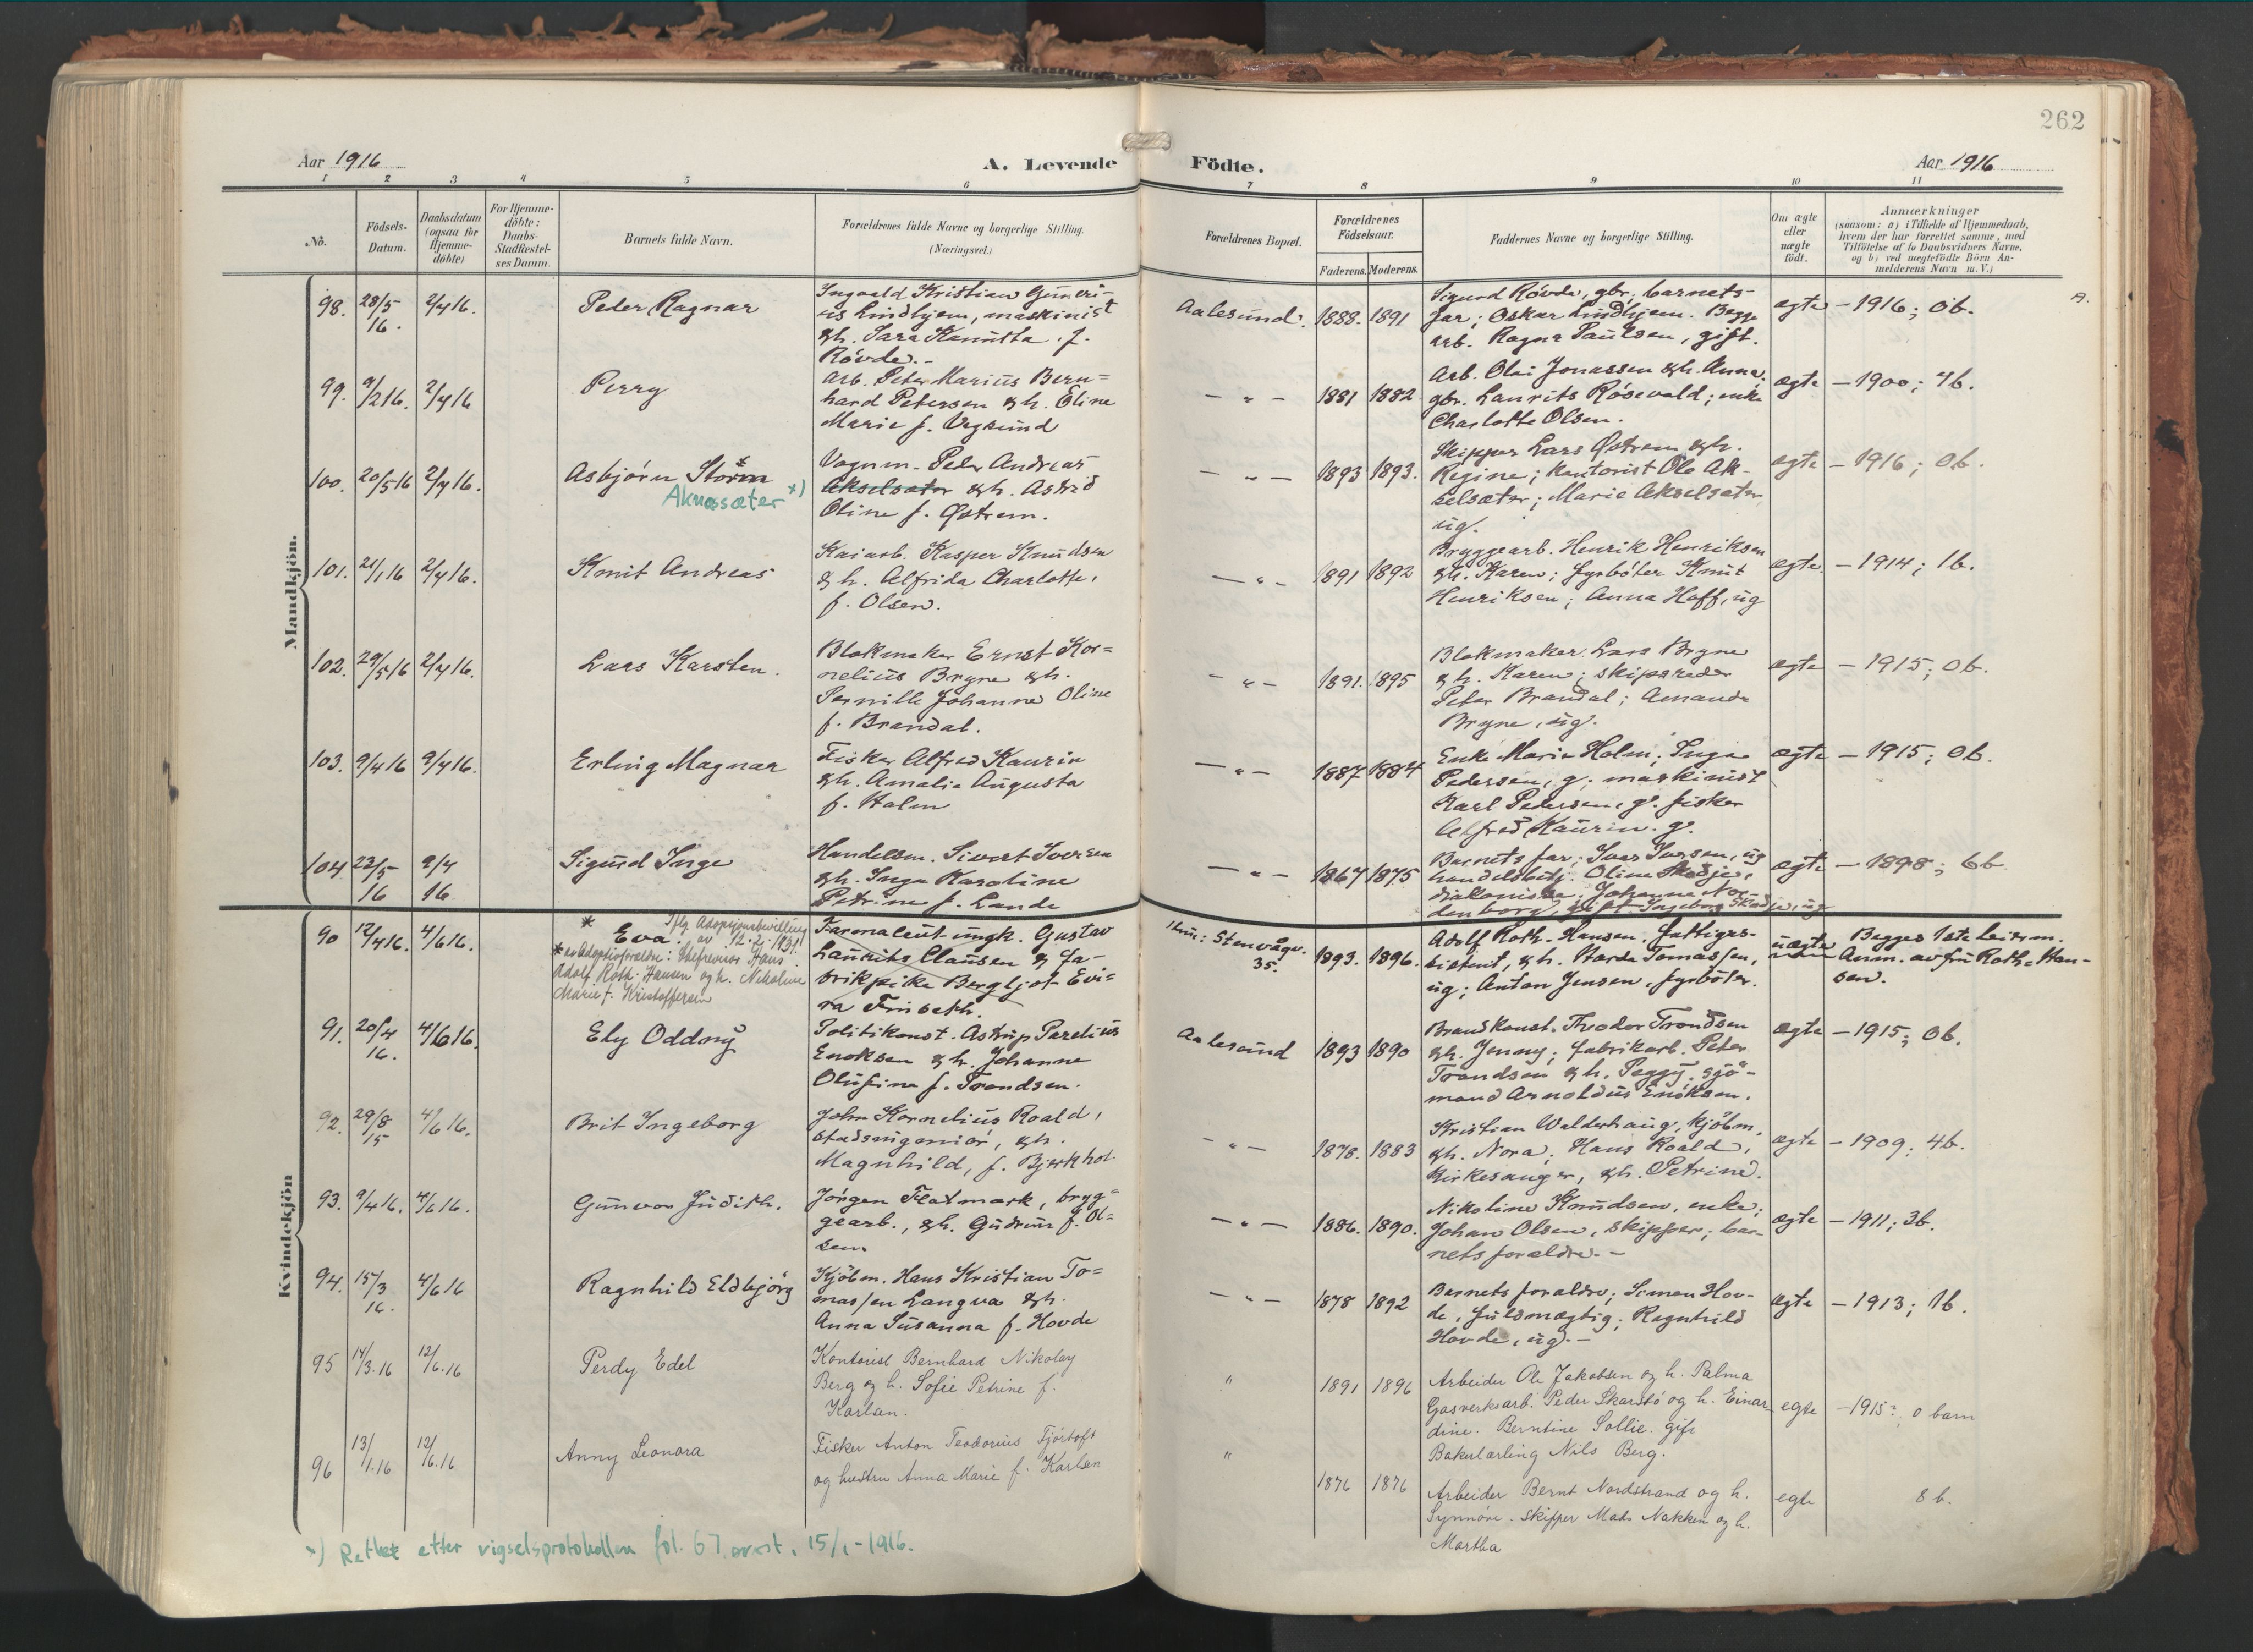 262
Aar 1916
A. Levende
Födte.
Aar 1916
1 2 3 4 5 6 7 8 9 10 11
No.
Födsels-
Datum.
Daabsdatum
(ogsaa for
Hjemme-
döbte)
For Hjemme-
döbte:
Daabs-
Stadfæstel-
ses Datum.
Barnets fulde Navn.
Forældrenes fulde Navne og borgerlige Stilling.
(Næringsvei.)
Forældrenes Bopæl.
Forældrenes
Födselsaar.
Faderens. Moderens.
Faddernes Navne og borgerlige Stilling.
Om ægte
eller
uægte
födt.
Anmærkninger
(saasom: a) i Tilfælde af Hjemmedaab,
hvem der har forrettet samme, med
Tilföielse af to Daabsvidners Navne,
og b) ved uegtefödte Börn An-
melderens Navn m. V.)
Mandkjön.
98. 28/5 16. 2/4 16.
Peder Ragnar
Ingvald Kristian
Lindhjem, maskinist
&h. Sara f.
Røvde.-
Aalesund. 1888. 1891
Sigurd Røvde, gbr., barnets
far; Oskar Lindhjem. Begge
arb. Ragna Paulsen, gift.
ægte - 1916; 0b.
A.
99. 9/2 16. 2/4 16
Perry
Arb. Peter Marius Bern=
hard Petersen &h. Oline
Marie f. Vegsund
- " - 1881 1882
Arb. Olai Jonassen &h. Anna;
gbr. Laurits Røsevold; enke
Charlotte Olsen.
ægte - 1900; 4b.
100. 20/5 16 2/4 16.
Asbjørn Storm
Aknessæter x)
Vognm. Peder Andreas
Akselsæter &h. Astrid
Oline f. Østrem.
- " - 1893 1893.
Skipper Lars Østrem &h.
Regine; kontorist Ole Ak-
selsæter; Marie Akselsæter
ug.
ægte - 1916; 0b.
101. 21/1 16 2/4 16.
Knut Andreas
Kaiarb. Kasper Knudsen
&h. Alfrida Charlotte,
f. Olsen.
- " - 1891 1892
Bryggearb. Henrik Henriksen
&h. Karen; fyrbøter Knut
Henriksen; Anna Hoff, ug
ægte. - 1914; 1b.
102. 29/5 16 2/4 16.
Lars Karsten.
Blokmaker Ernst Kor=
nelius Bryne &h.
Pernille Johanne Oline
f. Brandal.
- " - 1891. 1895
Blokmaker Lars Bryne
&h. Karen; skipsreder
Peter Brandal; Amanda
Bryne, ug.
ægte - 1915; 0b.
103. 9/4 16 9/4 16.
Erling Magnar
Fisker Alfred Kaurin
&h. Amalie Augusta
f. Holm
- " - 1887 1884
Enke Marie Holm; Inga
Pedersen, g; maskinist
Karl Pedersen, g. fisker
Alfred Kaurin. g.
ægte - 1915; 0b.
104 23/5 16 9/4 16
Sigurd Inge
Handelsm. Sivert Iversen
&h. Inga Karoline
Petrine f. Lande
- " - 1867 1875
Barnets far; Ivar Iversen, ug
handelsbetj. Oline Skodje,
diakonisse; Johanne Nor-
denborg, gift Ingeborg Skodje, ug
ægte - 1898; 6b
Kvindekjön
90 12/4 16. 4/6 16.
* Eva. Iflg. Adopsjonsbevilling
av 12.2.1931.
* Adoptivforældre: Chefrevisor Hans
Adolf Roth-Hansen og h. Nikoline
Marie f. Kristoffersen
ungk. Gustav
Laurits Clausen & fa-
brikpike Bergljot Evi-
ra Finseth.
Stenvågv.
35.
1893. 1896.
Adolf Roth-Hansen, fattigas-
sistent, &h. Harda Tomassen,
ug; Anton Jensen, fyrbøter.
uægte
Begges 1ste leierm.
Anm. av fru Roth-Han-
sen.
91. 20/4 16. 4/6 16.
Ely Oddny
Politikonst. Astrup Parelius
Enoksen &h. Johanne
Olufine f. Trondsen.
Aalesund 1893 1890
Brandkonst. Theodor Trondsen
&h. Jenny; fabrikarb. Peter
Trondsen &h. Peggy, sjö-
mand Arnoldus Enoksen.
ægte - 1915; 0b.
92. 29/8 15 4/6 16.
Brit Ingeborg
John Kornelius Roald,
stadsingeniør, &h.
Magnhild, f. Bjerkhol
- " - 1878. 1883
Kristian Walderhaug, kjöbm.
&h. Nora; Hans Roald,
kirkesanger, &h. Petrine.
ægte - 1909; 4b.
93. 9/4 16. 4/6 16.
Gunvor Judith.
Jørgen Flatmark, bryg=
gearb., &h. Gudrun f. Ol=
sen.
- " - 1886. 1890.
Nikoline Knudsen, enke;
Johan Olsen, skipper; bar-
nets foraldre. -
ægte - 1911; 3b.
94. 15/3 16. 4/6 16
Ragnhild Eldbjørg
Kjöbm. Hans Kristian To=
massen Langva &h.
Anna Susanna f. Hovde
- " - 1878 1892
Barnets foraldre; Simon Hov-
de, fuldmægtig; Ragnhild
Hovde, ug. -
ægte - 1913; 1b.
95 14/3.16 12/6.16
Perdy Edel
Kontorist Bernhard Nikolay
Berg og h. Sofie Petrine f.
Karlsen.
" 1891 1896
Arbeider Ole Jakobsen og h. Palma
Gasverksarb. Peder Skarstø og h. Einar-
dine. Berntine Sollie. gift
Bakerlærling Nils Berg.
egte - 1915; 0 barn
96 13/1.16 12/6.16
Anny Leonora
Fisker Anton Teodorius Fjørtoft
og hustru Anna Marie f. Karlsen
" 1876 1876
Arbeider Bernt Nordstrand og h.
Synnøve. Skipper Mads Nakken og h.
Martha
egte 8 b.
x) Rettet etter vigselsprotokollen fol. 67. 15/1-1916.